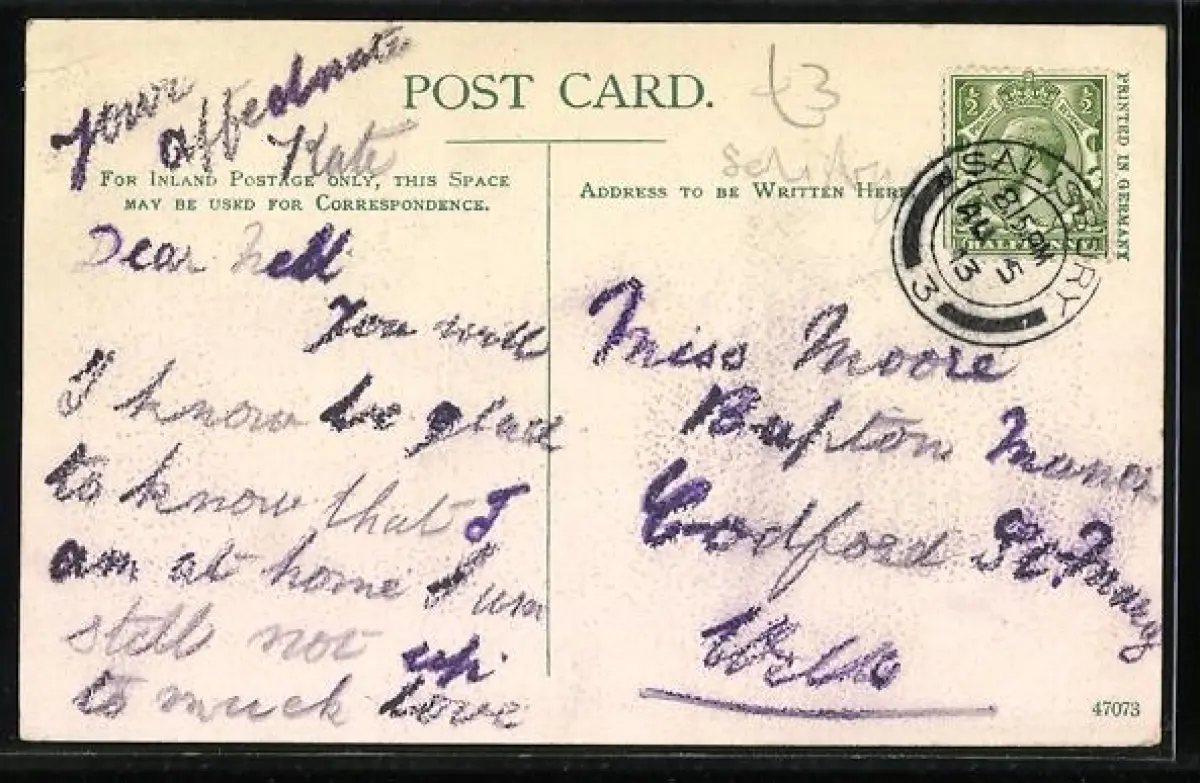 your
affectnate
Kate
POST CARD.
FOR INLAND POSTAGE ONLY, THIS SPACE
MAY BE USED FOR CORRESPONDENCE.
ADDRESS TO BE WRITTEN HERE
Dear Nell
You will
I know be glad
to know that I
am at home I am
still not up
to much Love
Miss Moore
Bapton Manor
Codford St. Mary
Wilts
½ ½
HALFPENNY
SALISBURY
8 15 PM
AU 5
13
3
PRINTED IN GERMANY
47073